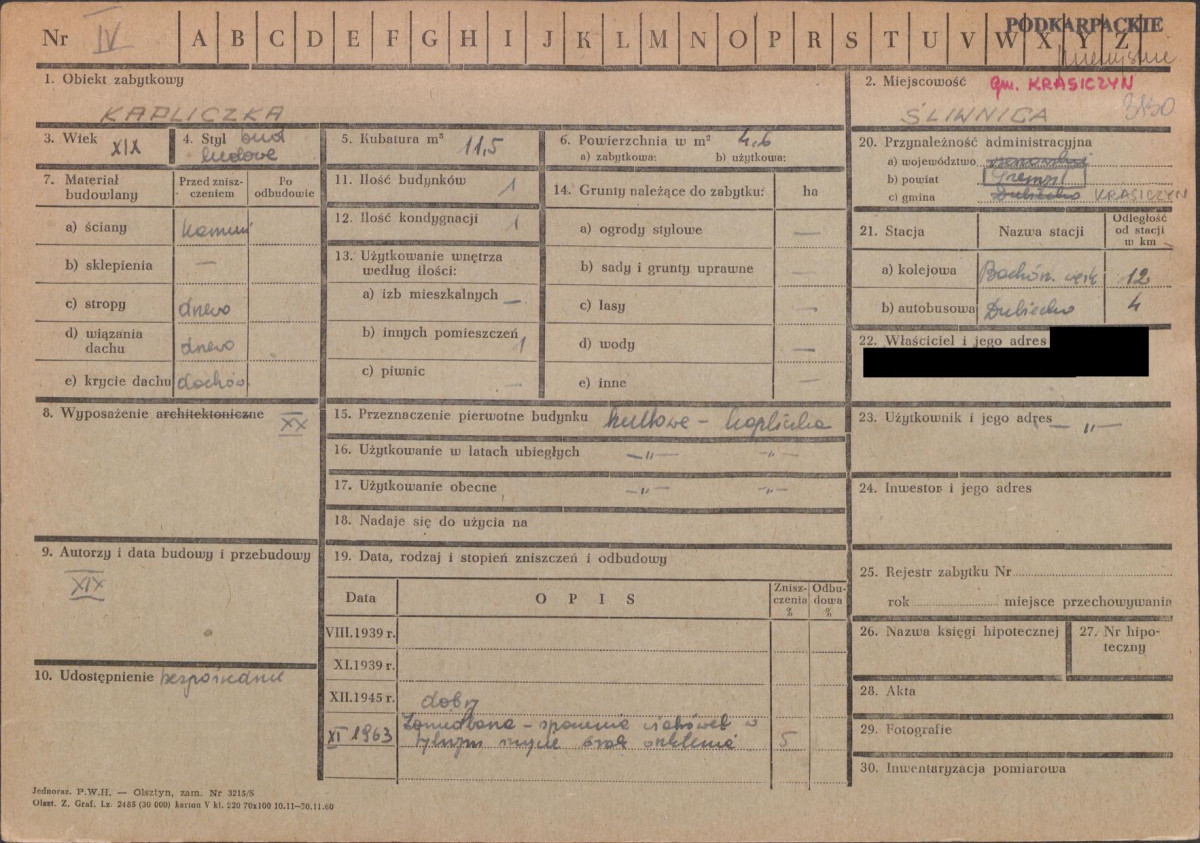 Nr IV A B C D E F G H I J K L M N O P R S T U V W X Y Z
PODKARPACKIE
1. Obiekt zabytkowy
KAPLICZKA
2. Miejscowość gm. KRASICZYN
ŚLIWNICA 3150
3. Wiek XIX
4. Styl bud
ludowe
5. Kubatura m³ 11,5
6. Powierzchnia w m² 4,6
a) zabytkowa: b) użytkowa:
7. Materiał budowlany
Przed zniszczeniem
Po odbudowie
a) ściany kamień
b) sklepienia —
c) stropy drewo
d) wiązania dachu drewo
e) krycie dachu dachów
11. Ilość budynków 1
12. Ilość kondygnacji 1
13. Użytkowanie wnętrza według ilości:
a) izb mieszkalnych —
b) innych pomieszczeń 1
c) piwnic —
14. Grunty należące do zabytku: ha
a) ogrody stylowe —
b) sady i grunty uprawne —
c) lasy —
d) wody —
e) inne —
20. Przynależność administracyjna
a) województwo
b) powiat Przemyśl
c) gmina Dubiecko KRASICZYN
21. Stacja
Nazwa stacji
Odległość od stacji w km
a) kolejowa Bachórz 12
b) autobusowa Dubiecko 4
22. Właściciel i jego adres
8. Wyposażenie architektoniczne
XX
15. Przeznaczenie pierwotne budynku kultowe – kapliczka
16. Użytkowanie w latach ubiegłych —"— —"—
17. Użytkowanie obecne —"— —"—
18. Nadaje się do użycia na
23. Użytkownik i jego adres —"—
24. Inwestor i jego adres
9. Autorzy i data budowy i przebudowy
XIX
19. Data, rodzaj i stopień zniszczeń i odbudowy
Data
OPIS
Zniszczenia %
Odbudowa %
VIII.1939 r.
XI.1939 r.
XII.1945 r. dobry
XI 1963 Zaniedbana – w
tylnym szczycie brak oszklenia 5
10. Udostępnienie bezpośrednie
25. Rejestr zabytku Nr
rok miejsce przechowywania
26. Nazwa księgi hipotecznej
27. Nr hipoteczny
28. Akta
29. Fotografie
30. Inwentaryzacja pomiarowa
Jednoraz. P.W.H. — Olsztyn, zam. Nr 3215/S
Olszt. Z. Graf. Lz. 2485 (30 000) karton V kl. 220 70x100 10.11—70.11.60